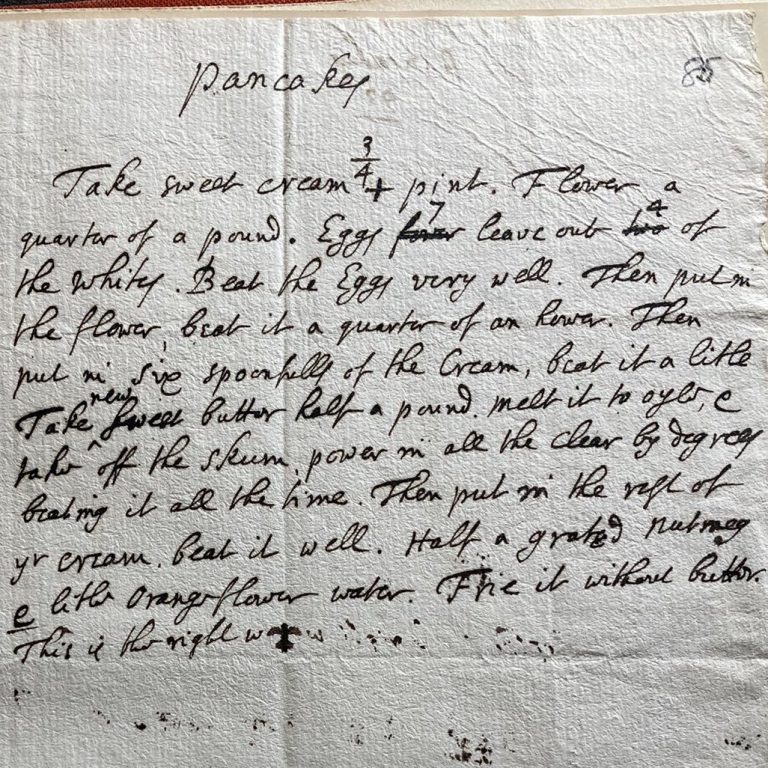 85
Pancakes
Take sweet cream 3/4 + pint. Flower a
quarter of a pound. Eggs four 7 leave out two 4 of
the whites. Beat the Eggs very well. Then put in
the flower, beat it a quarter of an hower. Then
put in six spoonfulls of the Cream, beat it a litle
Take new sweet butter half a pound. melt it to oyle, e
take off the skum, power in all the clear by degrees
beating it all the time. Then put in the rest of
yr cream. beat it well. Half a grated nutmeg
e litle orangeflower water. Frie it without butter.
This is the right